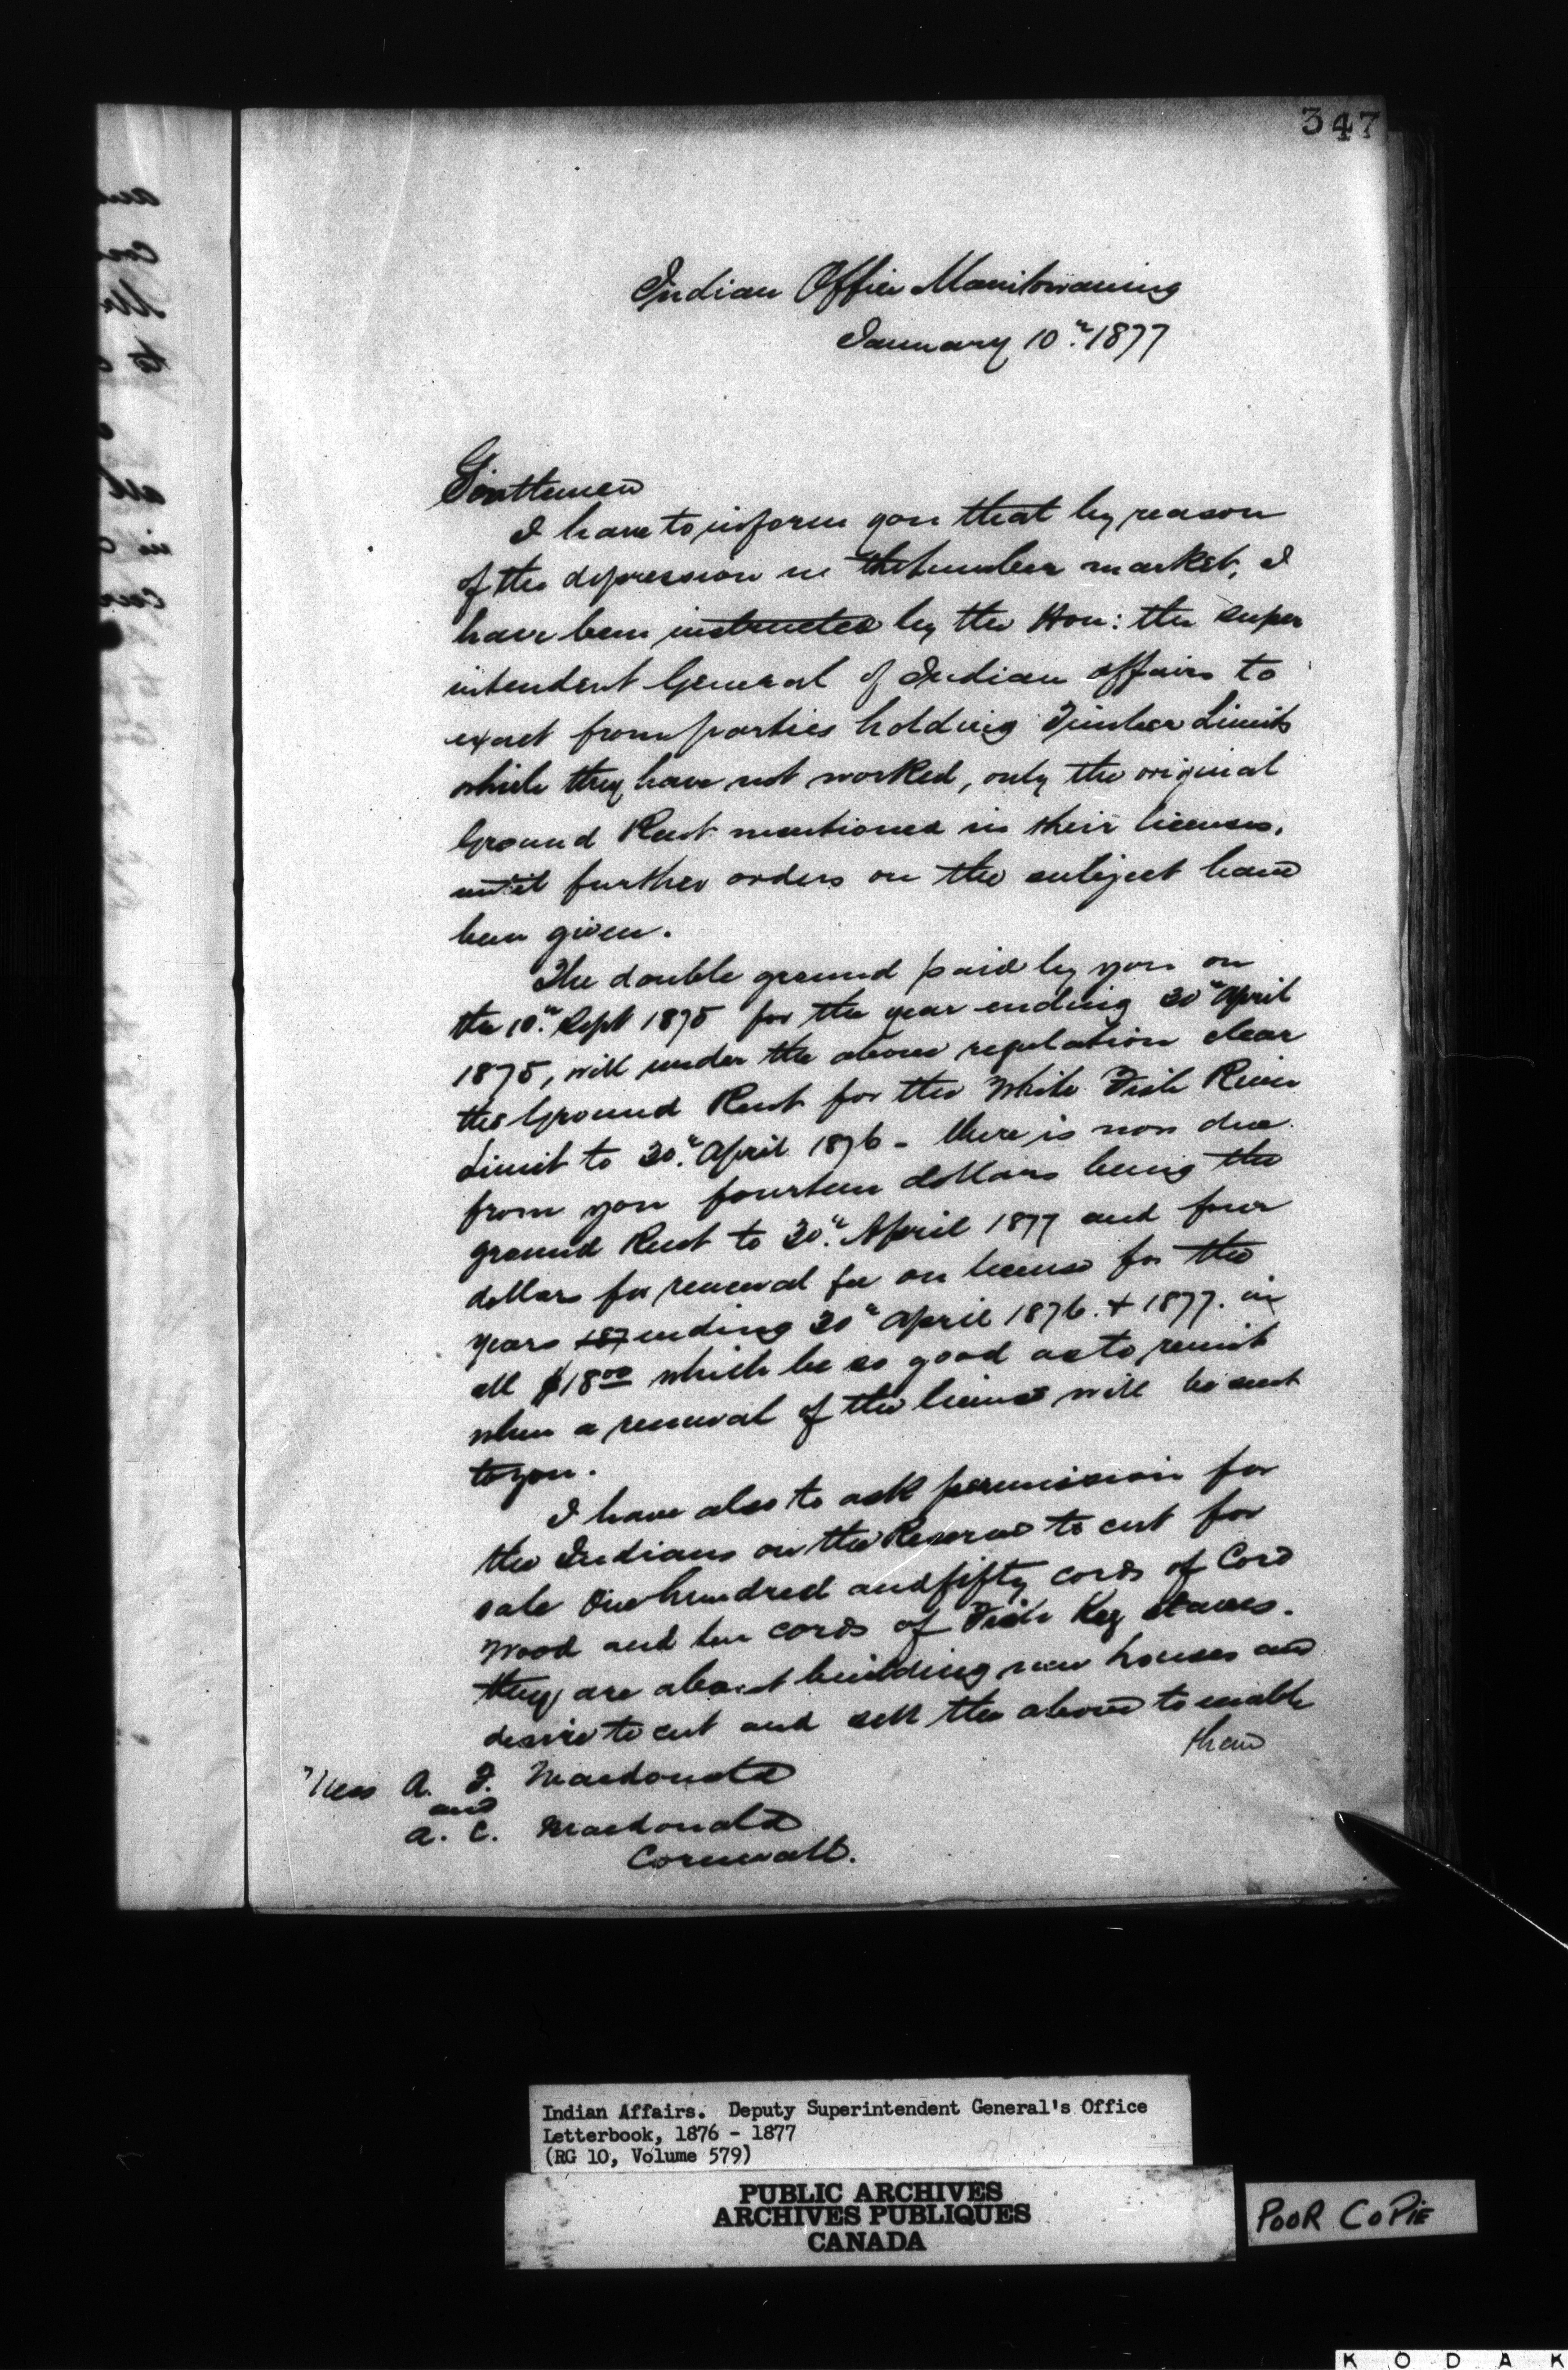 347
Indian Office Manitowaning
January 10th 1877
Gentlemen
I have to inform you that by reason
of the depression in the lumber market, I
have been instructed by the Hon: the Super
intendent General of Indian Affairs to
exact from parties holding Timber Limits
which they have not worked, only the original
Ground Rent mentioned in their licenses,
until further orders on the subject have
been given.
The double ground paid by you on
the 10th Sept 1875 for the year ending 30th April
1875, will under the above regulation clear
the Ground Rent for the White Fish River
Limit to 30th April 1876 - there is now due
from you fourteen dollars being the
ground Rent to 30th April 1877 and four
dollars for renewal fee on license for the
years 187 ending 30th April 1876 & 1877. in
all $18.00 which be so good as to remit
when a renewal of the license will be sent
to you.
I have also to ask permission for
the Indians on the Reserve to cut for
sale One hundred and fifty cords of Cord
Wood and ten cords of Fish Keg staves.
they are about building new houses and
desire to cut and sell the above to enable
them
Mess A. F. Macdonald
and
A. C. Macdonald
Cornwall.
Indian Affairs. Deputy Superintendent General's Office
Letterbook, 1876 - 1877
(RG 10, Volume 579)
PUBLIC ARCHIVES
ARCHIVES PUBLIQUES
CANADA
POOR COPIE
KODAK